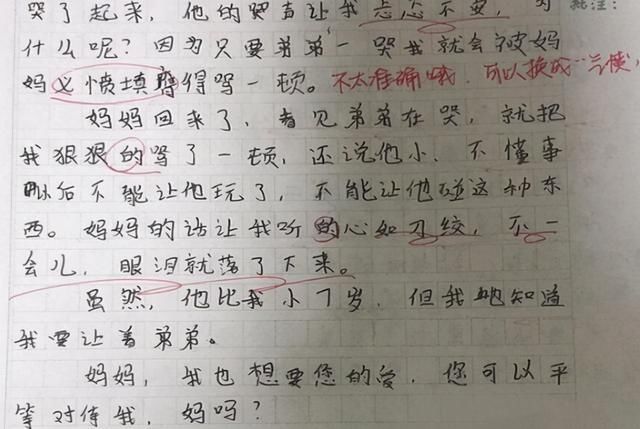 哭了起来，他的哭声让我忐忑不安，为
批注：
什么呢？因为只要弟弟一哭我就会被妈
妈义愤填膺得骂一顿。不太准确哦，可以换成
妈妈回来了，看见弟弟在哭，就把
我狠狠的骂了一顿，还说他小，不懂事
以后不能让他玩了，不能让他碰这种东
西。妈妈的话让我听的心如刀绞，不一
会儿，眼泪就落了下来。
虽然，他比我小7岁，但我知道
我要让着弟弟。
妈妈，我也想要您的爱，您可以平
等对待我，妈吗？